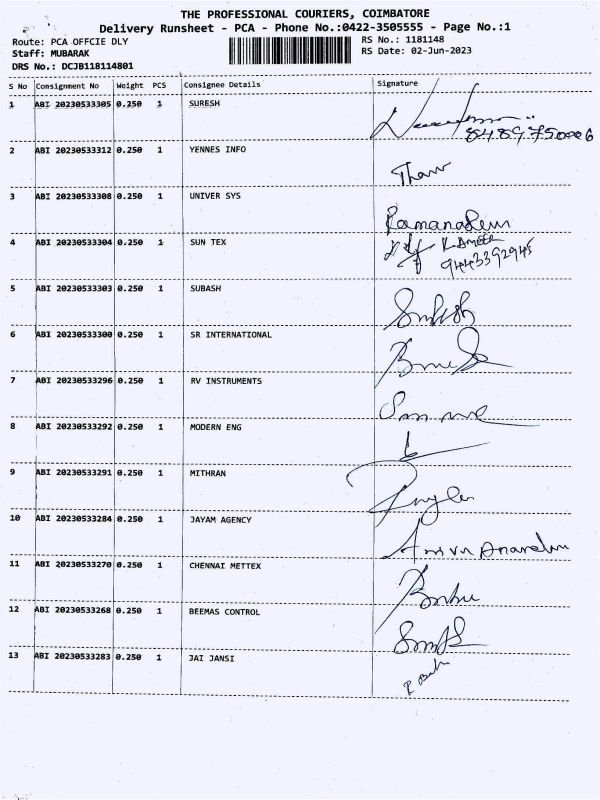 THE PROFESSIONAL COURIERS, COIMBATORE
Delivery Runsheet - PCA - Phone No.:0422-3505555 - Page No.:1
Route: PCA OFFCIE DLY
RS No.: 1181148
Staff: MUBARAK
RS Date: 02-Jun-2023
DRS No.: DCJB118114801
S No Consignment No Weight PCS Consignee Details Signature
1 ABI 20230533305 0.250 1 SURESH
8489750006
2 ABI 20230533312 0.250 1 YENNES INFO
3 ABI 20230533308 0.250 1 UNIVER SYS
4 ABI 20230533304 0.250 1 SUN TEX
9443392945
5 ABI 20230533303 0.250 1 SUBASH
6 ABI 20230533300 0.250 1 SR INTERNATIONAL
7 ABI 20230533296 0.250 1 RV INSTRUMENTS
8 ABI 20230533292 0.250 1 MODERN ENG
9 ABI 20230533291 0.250 1 MITHRAN
10 ABI 20230533284 0.250 1 JAYAM AGENCY
11 ABI 20230533270 0.250 1 CHENNAI METTEX
12 ABI 20230533268 0.250 1 BEEMAS CONTROL
13 ABI 20230533283 0.250 1 JAI JANSI